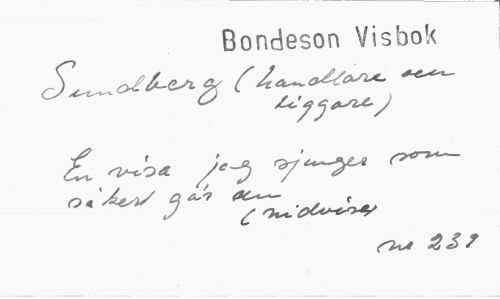 Bondeson Visbok
Sundberg (handlare sen
tiggare)
En visa jag sjunger som
säkert går an
(nidvisa)
nr 239